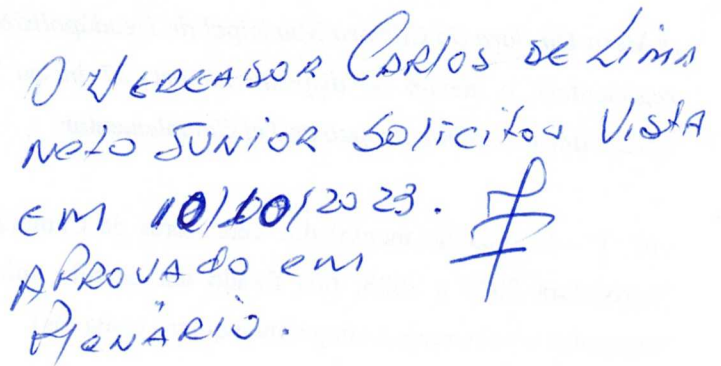 O VEREADOR CARLOS DE LIMA
NETO JUNIOR SOLICITOU VISTA
EM 10/10/2023.
APROVADO EM
PLENÁRIO.